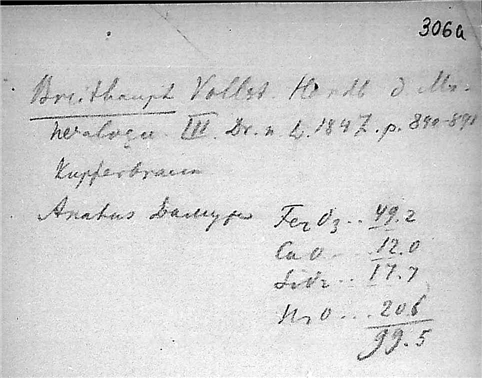 306a
Breithaupt Vollst. Handb d Mi-
neralogie. III. Dr. n. L. 1847. p. 890-891
Kupferbraun
Анализ Дамура Fe2O3.. 49.2
CuO... 12.0
SiO2.. 17.7
H2O... 20.6
99.5